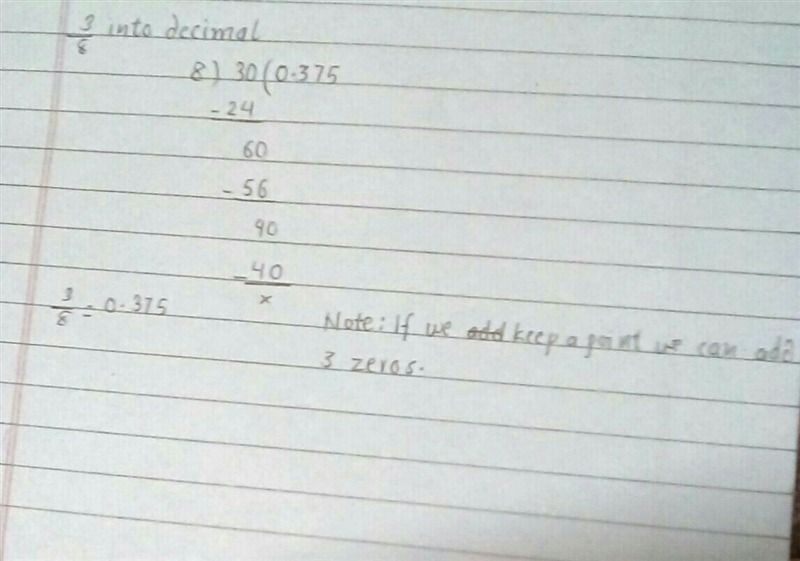 3/8 into decimal
8) 30(0.375
-24
60
-56
40
-40
x
3/8 = 0.375
Note: If we add keep a point we can add
3 zeros.